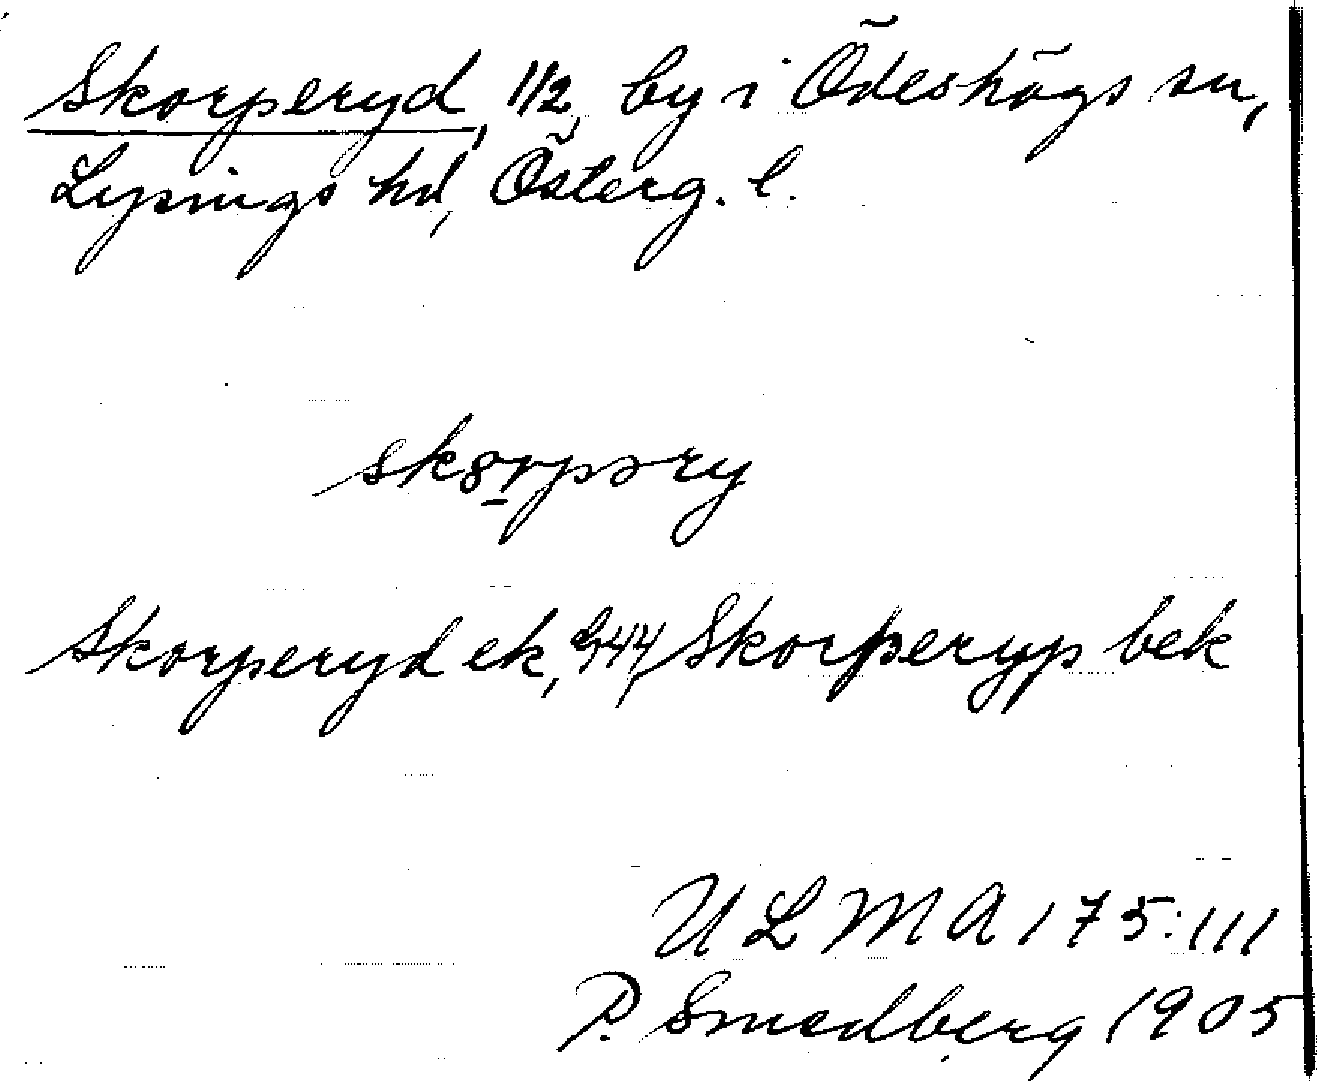 Skorperyd, 1/2, by i Ödeshögs sn,
Lysings hd, Österg. l.
skorpəry
Skorperyd ek, 944, Skorperyp bek
ULMA 175:111
P. Smedberg 1905